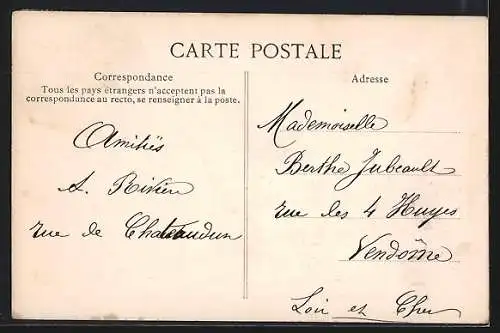 CARTE POSTALE
Correspondance
Tous les pays étrangers n'acceptent pas la
correspondance au recto, se renseigner à la poste.
Amitiés
A. Rivière
rue de Chateaudun
Adresse
Mademoiselle
Berthe Jubeault
rue des 4 Huyes
Vendôme
Loir et Cher